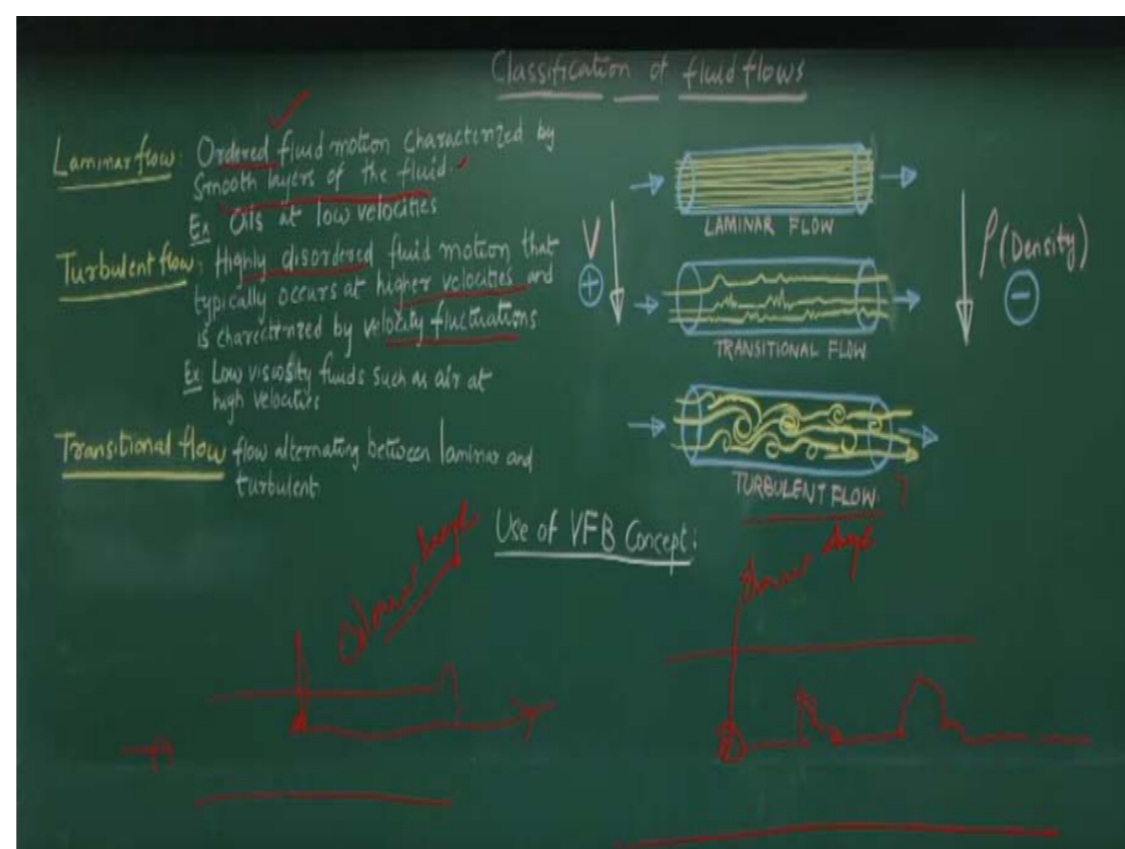 Classification of fluid flows
Laminar flow: Ordered fluid motion characterized by
Smooth layers of the fluid.
Ex Oils at low velocities
Turbulent flow: Highly disordered fluid motion that
typically occurs at higher velocities and
is charecterized by velocity fluctuations
Ex: Low viscosity fluids such as air at
high velocities
Transitional flow flow alternating between laminar and
turbulent.
LAMINAR FLOW
V
+
ρ (Density)
-
TRANSITIONAL FLOW
TURBULENT FLOW
Use of VFB Concept: